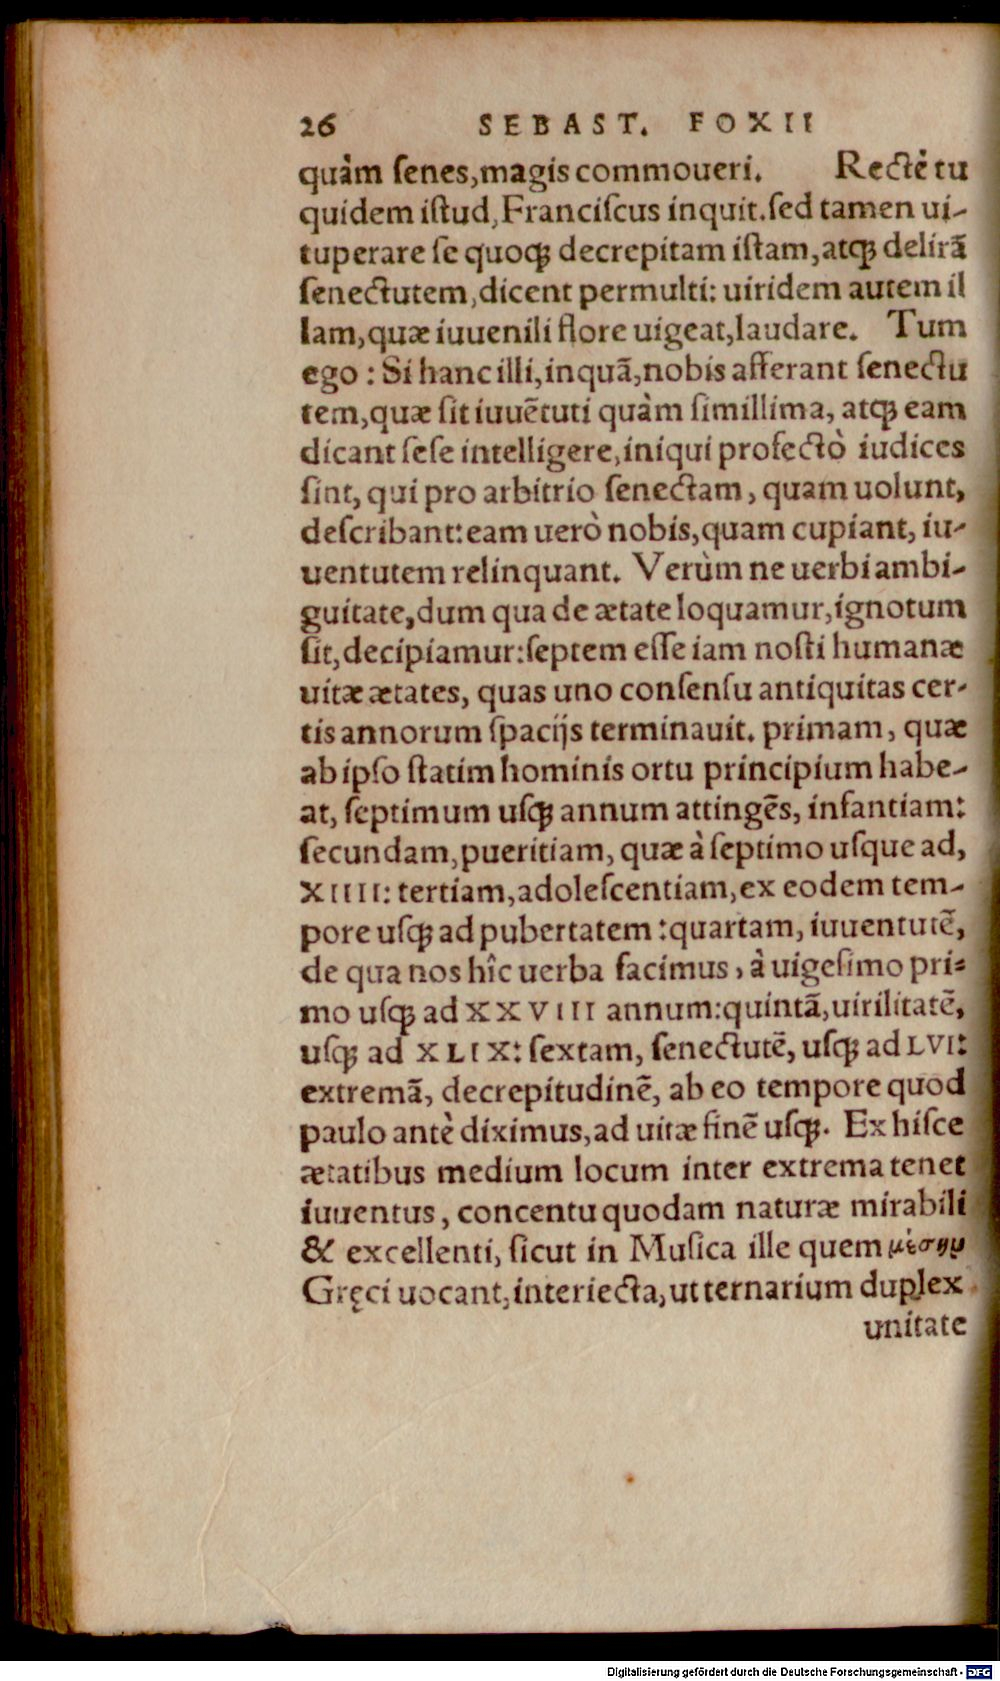 26 SEBAST. FOXII
quàm ſenes, magis commoueri. Rectè tu
quidem iſtud, Franciſcus inquit. ſed tamen ui-
tuperare ſe quoqꝫ decrepitam iſtam, atqꝫ delirā
ſenectutem, dicent permulti: uiridem autem il
lam, quæ iuuenili flore uigeat, laudare. Tum
ego: Si hanc illi, inquā, nobis afferant ſenectu
tem, quæ ſit iuuētuti quàm ſimillima, atqꝫ eam
dicant ſeſe intelligere, iniqui profectò iudices
ſint, qui pro arbitrio ſenectam, quam uolunt,
deſcribant: eam uerò nobis, quam cupiant, iu-
uentutem relinquant. Verùm ne uerbi ambi-
guitate, dum qua de ætate loquamur, ignotum
ſit, decipiamur: ſeptem eſſe iam noſti humanæ
uitæ ætates, quas uno conſenſu antiquitas cer-
tis annorum ſpacijs terminauit. primam, quæ
ab ipſo ſtatim hominis ortu principium habe-
at, ſeptimum uſqꝫ annum attingēs, infantiam:
ſecundam, pueritiam, quæ à ſeptimo uſque ad,
XIIII: tertiam, adoleſcentiam, ex eodem tem-
pore uſqꝫ ad pubertatem: quartam, iuuentutē,
de qua nos hîc uerba facimus, à uigeſimo pri-
mo uſqꝫ ad XXVIII annum: quintā, uirilitatē,
uſqꝫ ad XLIX: ſextam, ſenectutē, uſqꝫ ad LVI:
extremā, decrepitudinē, ab eo tempore quod
paulo antè diximus, ad uitæ finē uſqꝫ. Ex hiſce
ætatibus medium locum inter extrema tenet
iuuentus, concentu quodam naturæ mirabili
& excellenti, ſicut in Muſica ille quem μέσην
Gręci uocant, interiecta, ut ternarium duplex
unitate
Digitalisierung gefördert durch die Deutsche Forschungsgemeinschaft - DFG